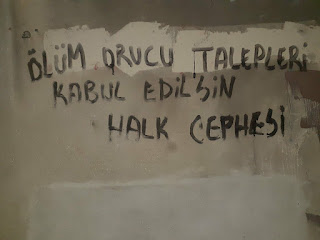 ÖLÜM ORUCU TALEPLERİ
KABUL EDİLSİN
HALK CEPHESİ